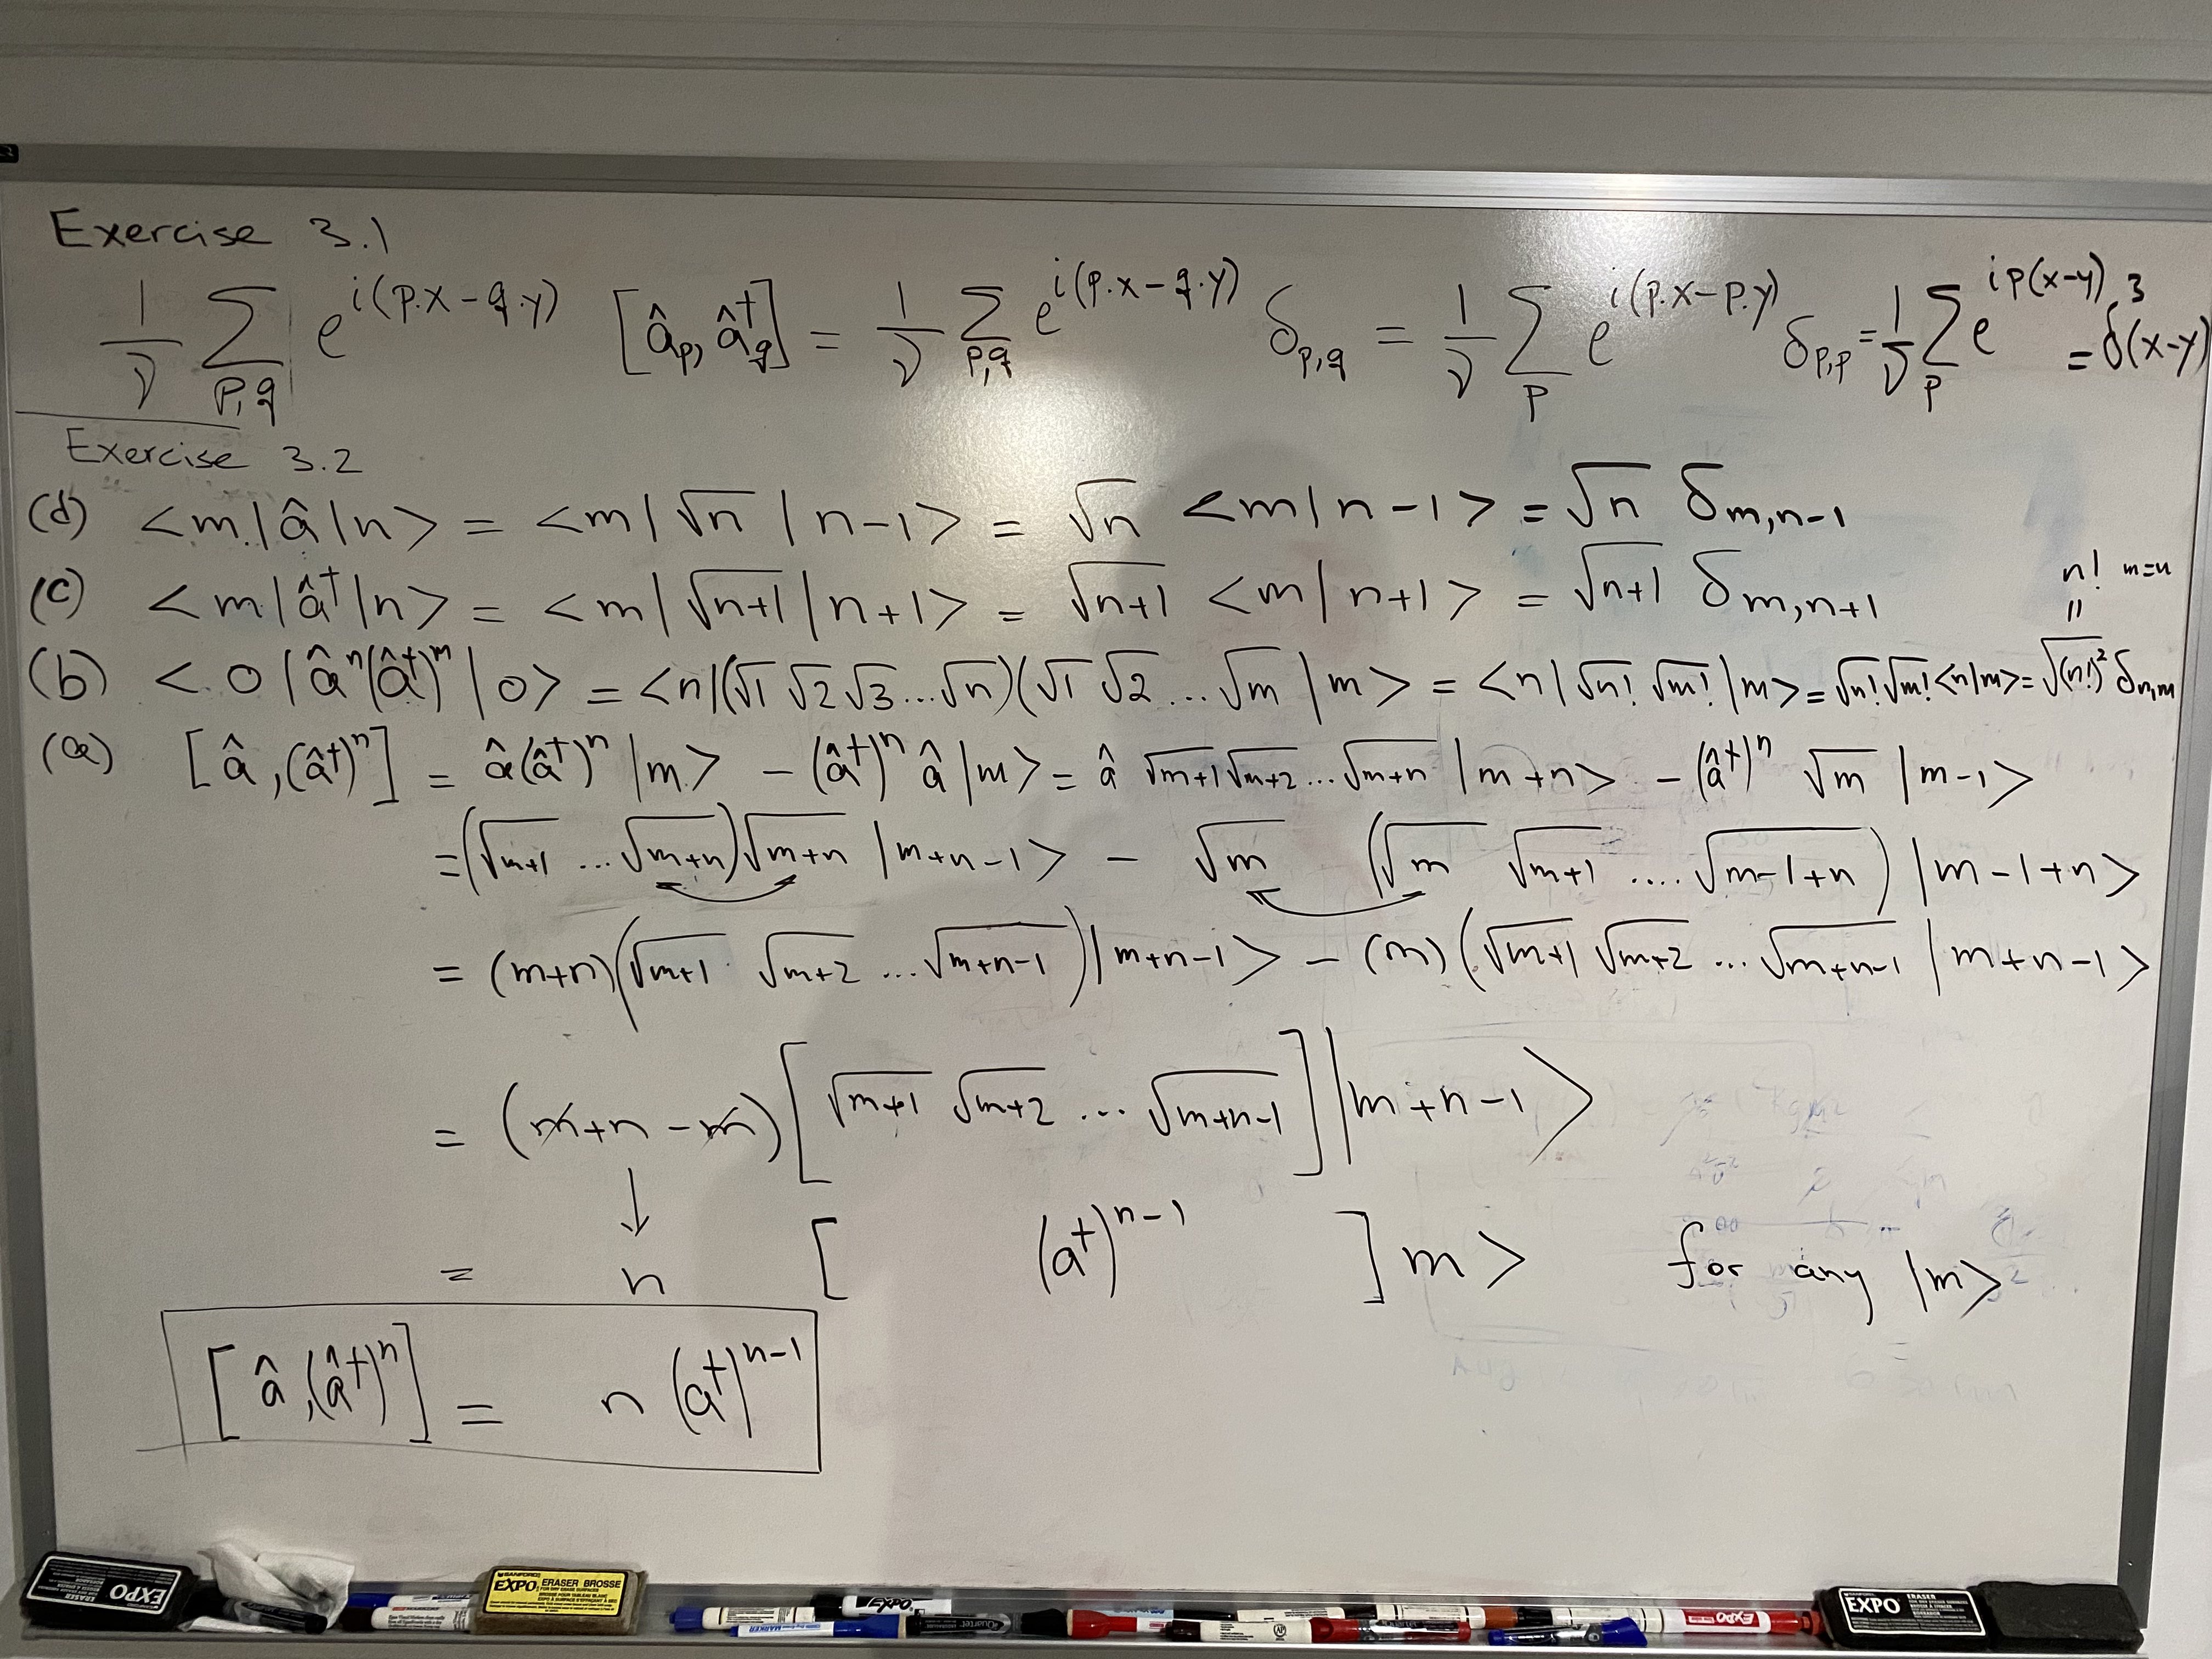 Exercise 3.1
1/V Σ_{p,q} e^{i(p.x-q.y)} [â_p, â†_q] = 1/V Σ_{p,q} e^{i(p.x-q.y)} δ_{p,q} = 1/V Σ_p e^{i(p.x-p.y)} δ_{p,p} = 1/V Σ_p e^{ip(x-y)} = δ^3(x-y)
Exercise 3.2
(d) <m|â|n> = <m|√n |n-1> = √n <m|n-1> = √n δ_{m,n-1}
(c) <m|â†|n> = <m|√(n+1) |n+1> = √(n+1) <m|n+1> = √(n+1) δ_{m,n+1}
n! m=n
||
(b) <0|â^n(â†)^m|0> = <n|(√1 √2 √3...√n)(√1 √2 ... √m |m> = <n|√n! √m! |m> = √n! √m! <n|m> = √(n!)^2 δ_{n,m}
(a) [â,(â†)^n] = â(â†)^n |m> - (â†)^n â |m> = â √(m+1) √(m+2) ... √(m+n) |m+n> - (â†)^n √m |m-1>
= (√(m+1) ... √(m+n)) √(m+n) |m+n-1> - √m (√m √(m+1) .... √(m-1+n)) |m-1+n>
= (m+n)(√(m+1) √(m+2) ... √(m+n-1)) |m+n-1> - (m)(√(m+1) √(m+2) ... √(m+n-1) |m+n-1>
= (m+n-m) [√(m+1) √(m+2) ... √(m+n-1)] |m+n-1>
↓
= n [ (a†)^{n-1} ] m> for any |m>
[â,(â†)^n] = n (a†)^{n-1}
EXPO
SANFORD
EXPO ERASER BROSSE
EXPO
Quartet
MARKER
EXPO
EXPO ERASER